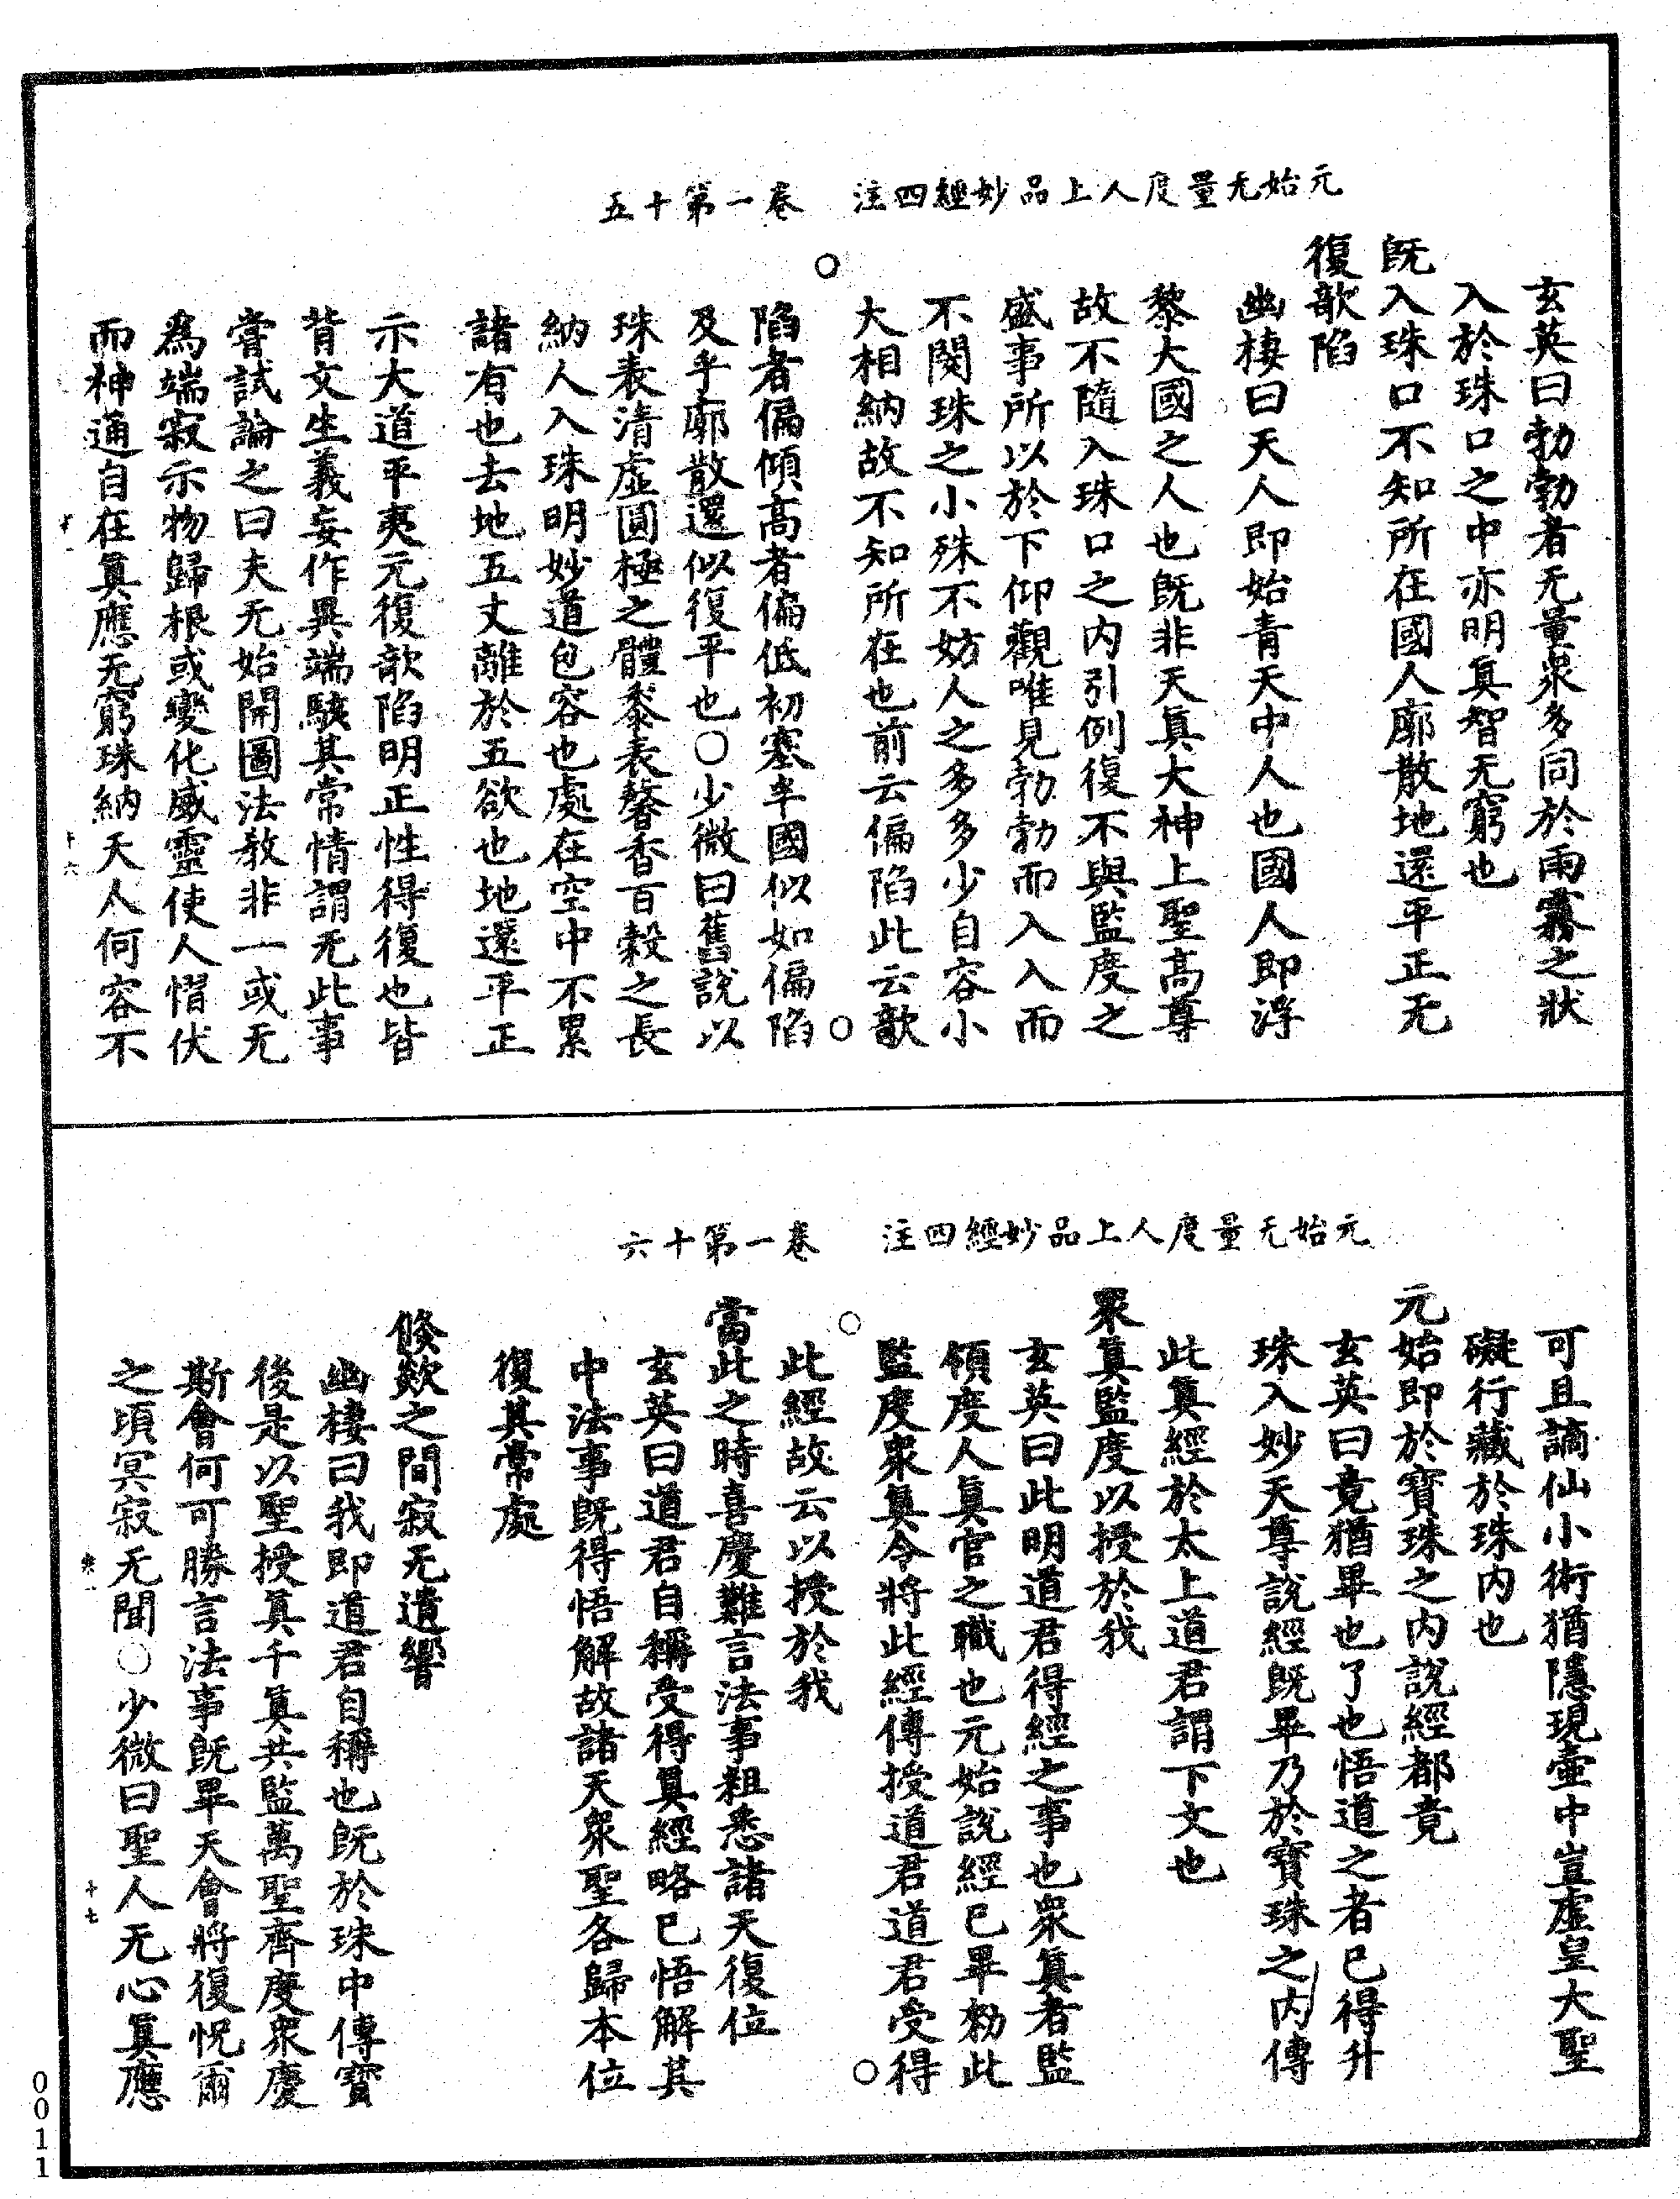 元始无量度人上品妙經四注　卷一第十五
玄英曰勃勃者无量衆多同於雨霧之狀
入於珠口之中亦明真智无窮也
既入珠口不知所在國人廓散地還平正无
復歆陷
幽棲曰天人即始青天中人也國人即浮
黎大國之人也既非天真大神上聖高尊
故不隨入珠口之内引例復不與監度之
盛事所以於下仰觀唯見勃勃而入入而
不関珠之小殊不妨人之多多少自容小
大相納故不知所在也前云偏陷此云歆
陷者偏傾高者偏低初塞牢國似如偏陷
及乎廓散還似復平也○少微曰舊說以
珠表清虛圓極之體黍表馨香百穀之長
納人入珠明妙道包容也處在空中不累
諸有也去地五丈離於五欲也地還平正
示大道平夷元復歆陷明正性得復也皆
背文生義妄作異端駭其常情謂无此事
嘗試論之曰夫无始開圖法教非一或无
為端寂示物歸根或變化威靈使人慴伏
而神通自在真應无窮珠納天人何容不
十六
元始无量度人上品妙經四注　卷一第十六
可且謫仙小術猶隱現壷中豈虛皇大聖
礙行藏於珠内也
元始即於寶珠之内說經都竟
玄英曰竟猶畢也了也悟道之者已得升
珠入妙天尊說經既畢乃於寶珠之内傳
此真經於太上道君謂下文也
衆真監度以授於我
玄英曰此明道君得經之事也衆真者監
領度人真官之職也元始說經已畢勑此
監度衆真令將此經傳授道君道君受得
此經故云以授於我
當此之時喜慶難言法事粗悉諸天復位
玄英曰道君自稱受得真經略已悟解其
中法事既得悟解故諸天衆聖各歸本位
復其常處
倏欻之間寂无遺響
幽棲曰我即道君自稱也既於珠中傳寶
後是以聖授真千真共監萬聖齊度衆慶
斯會何可勝言法事既畢天會將復怳爾
之頃冥寂无聞○少微曰聖人无心真應
十七
0011